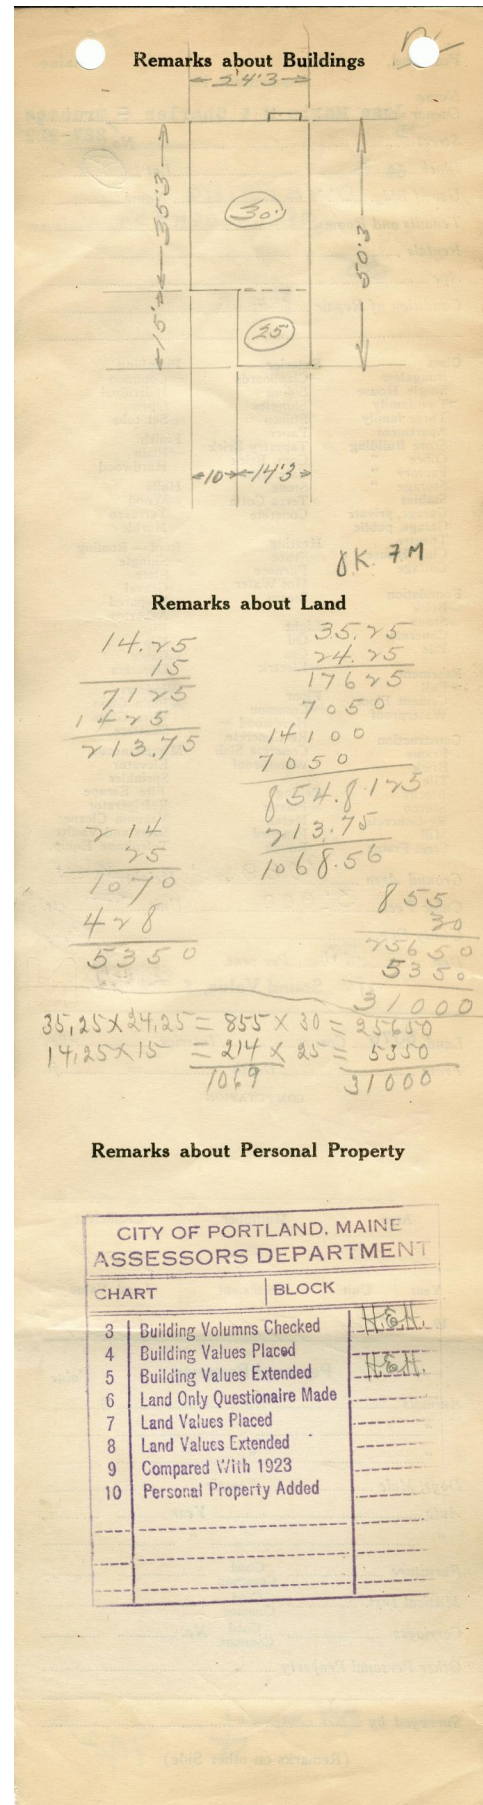 Remarks about Buildings
24'3
35'3
30
50'3
15'
25
10
14'3
OK. 7M
Remarks about Land
14.25
15
7125
1425
213.75
35.25
24.25
17625
7050
14100
7050
854.8125
213.75
1068.56
214
25
1070
428
5350
855
30
25650
5350
31000
35,25 X 24,25 = 855 X 30 = 25650
14,25 X 15 = 214 X 25 = 5350
1069 31000
Remarks about Personal Property
CITY OF PORTLAND, MAINE
ASSESSORS DEPARTMENT
CHART BLOCK
3 Building Volumns Checked H.E.H.
4 Building Values Placed
5 Building Values Extended H.E.H.
6 Land Only Questionaire Made
7 Land Values Placed
8 Land Values Extended
9 Compared With 1923
10 Personal Property Added